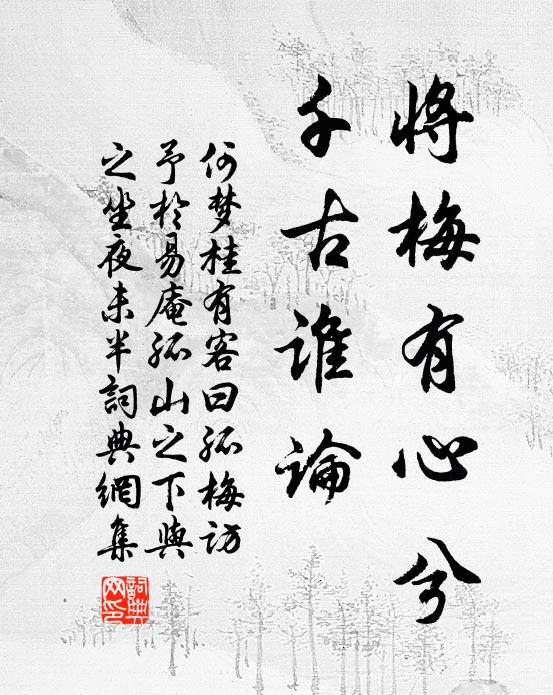 將梅有心兮
千古誰論
何梦桂有客曰孤梅访
予於易庵孤山之下與
之坐夜未半詞典網集
詞典網印